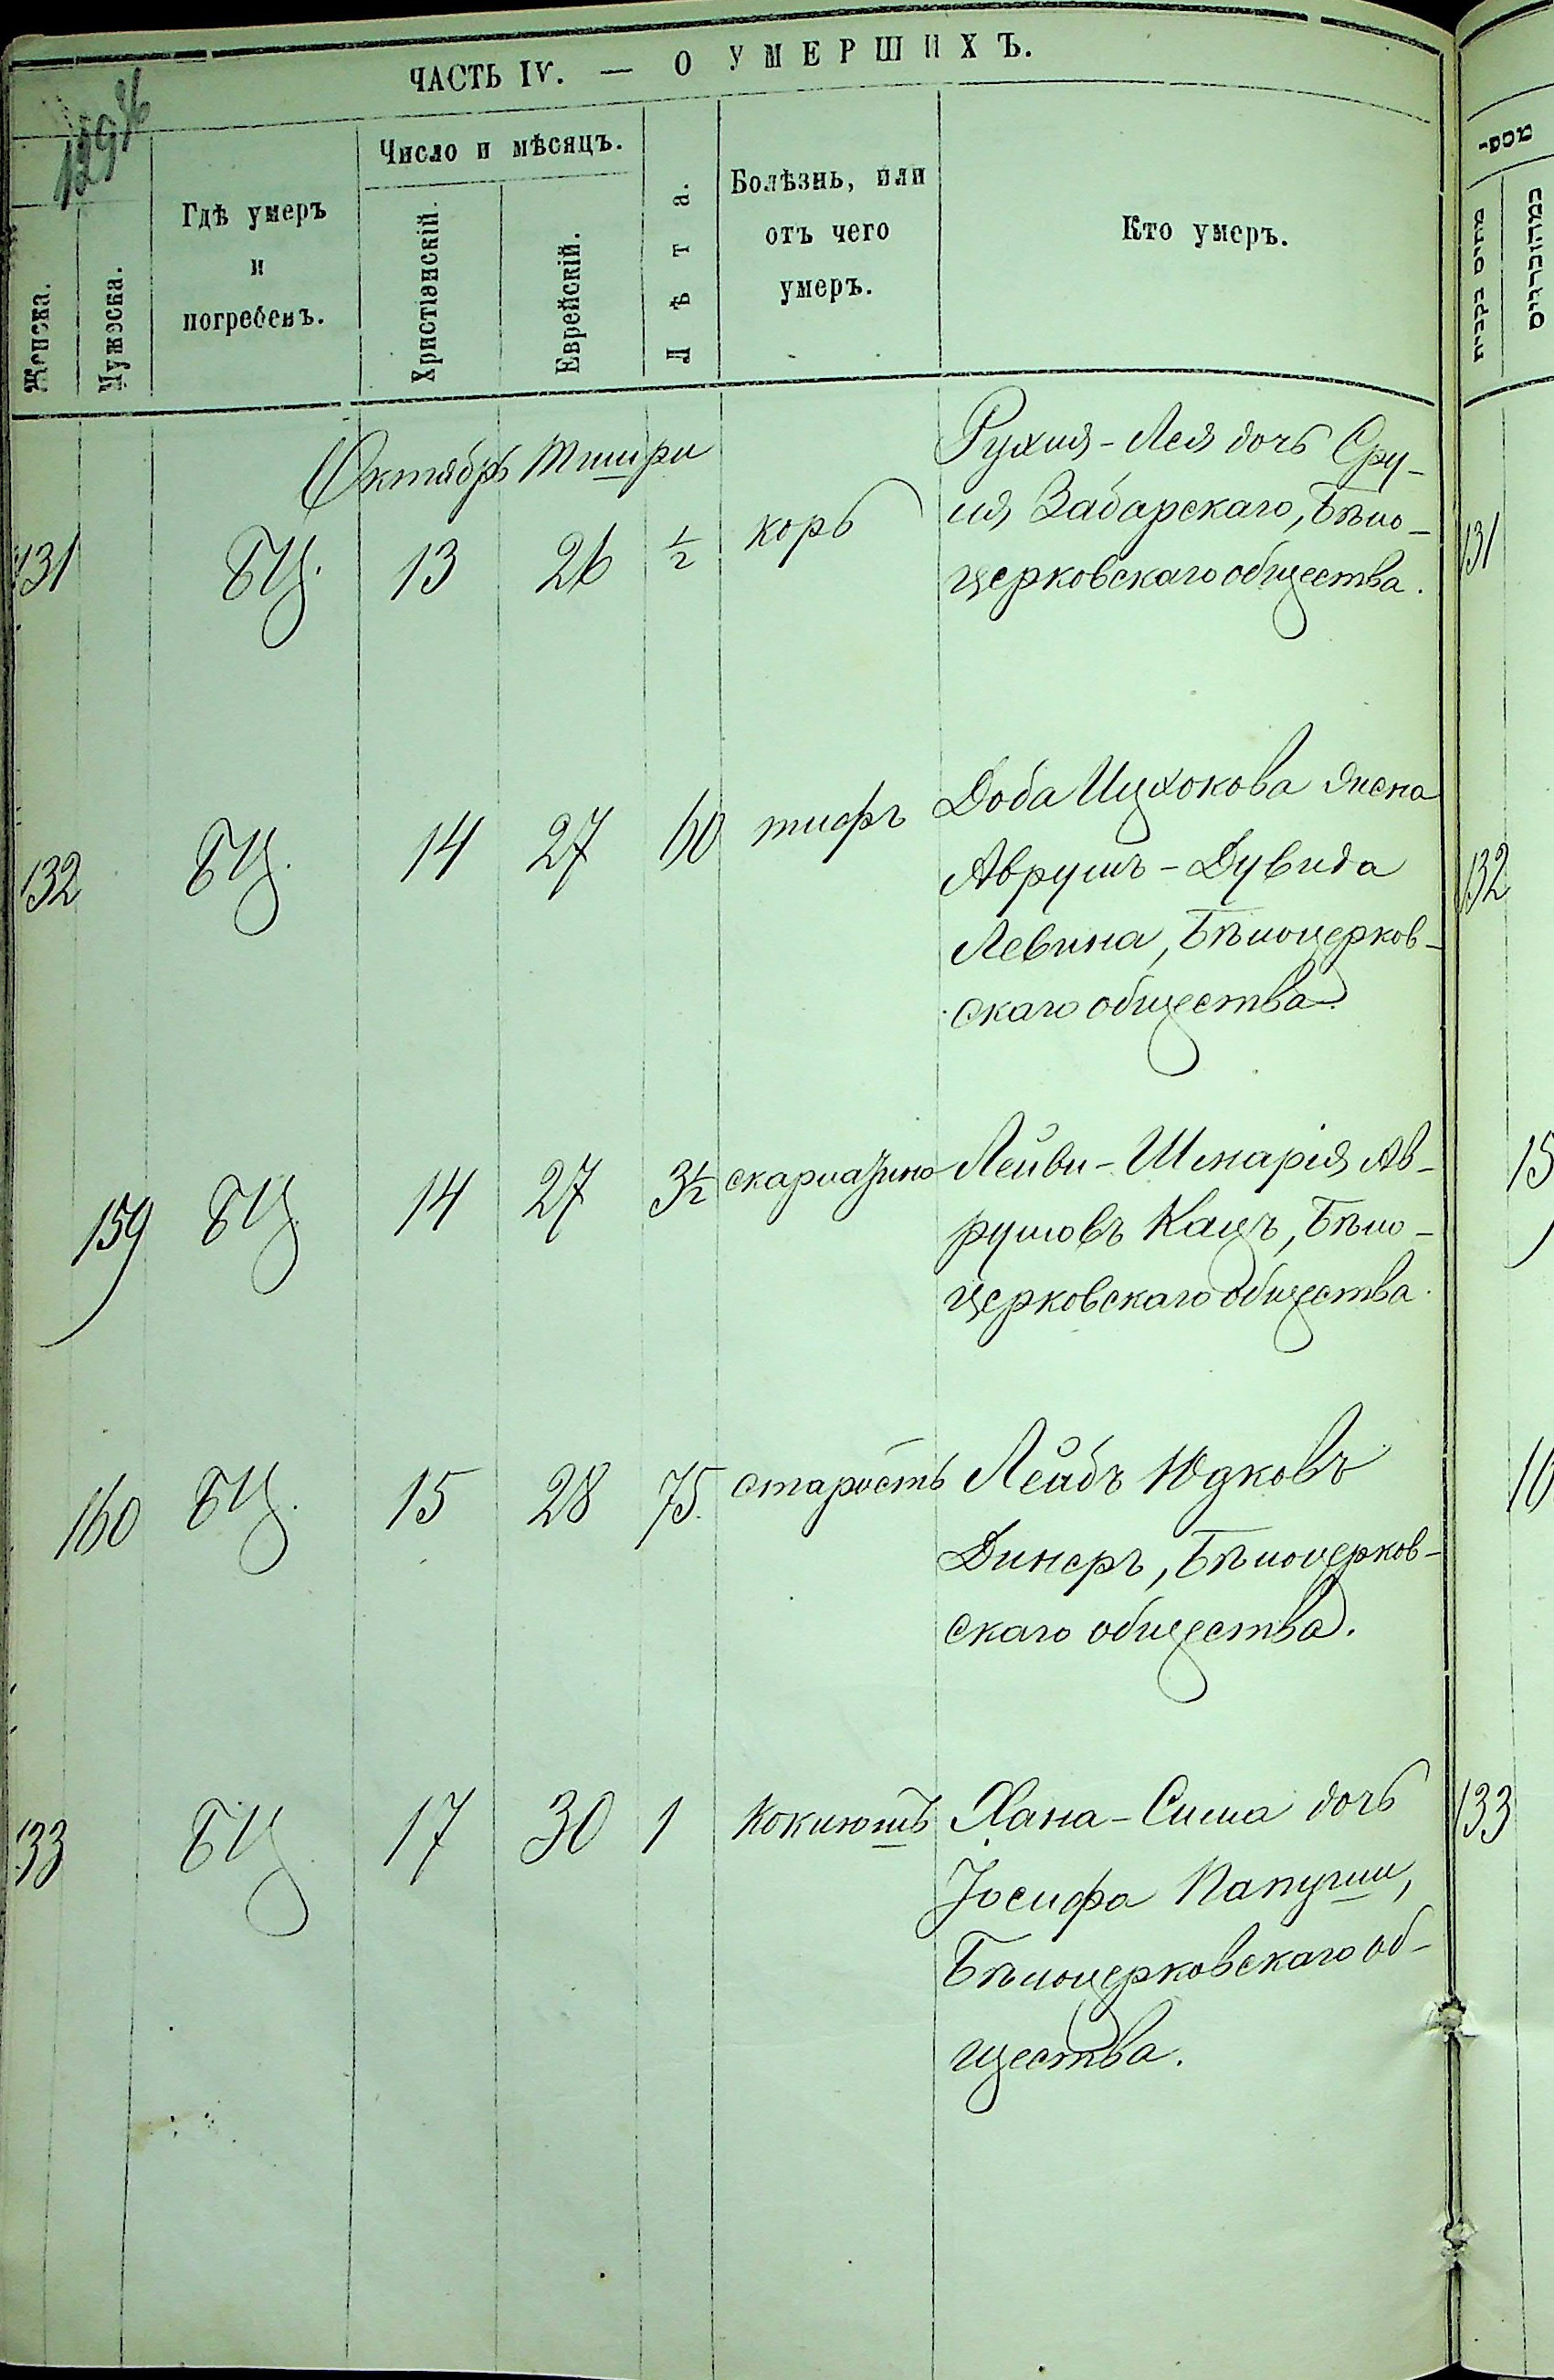 ЧАСТЬ IV. — О УМЕРШИХЪ.
129
Женска.
Мужеска.
Гдѣ умеръ
и
погребенъ.
Число и мѣсяцъ.
Христіанскій.
Еврейскій.
Лѣта.
Болѣзнь, или
отъ чего
умеръ.
Кто умеръ.
Октябрь Тишри
131 БЦ. 13 26 ½ корь
Рухля-Лея дочь Сру-
ля Забарскаго, Бѣло-
церковскаго общества.
131
132 БЦ. 14 27 60 тифъ
Доба Ицхокова жена
Аврумъ-Дувида
Левина, Бѣлоцерков-
скаго общества.
132
159 БЦ. 14 27 3½ скарлатина
Лейви-Шмарія Ав-
румовъ Кацъ, Бѣло-
церковскаго общества.
15
160 БЦ. 15 28 75. старость
Лейбъ Юдковъ
Динеръ, Бѣлоцерков-
скаго общества.
16
133 БЦ. 17 30 1 коклюшъ
Хана-Сима дочь
Іосифа Папуши,
Бѣлоцерковскаго об-
щества.
133